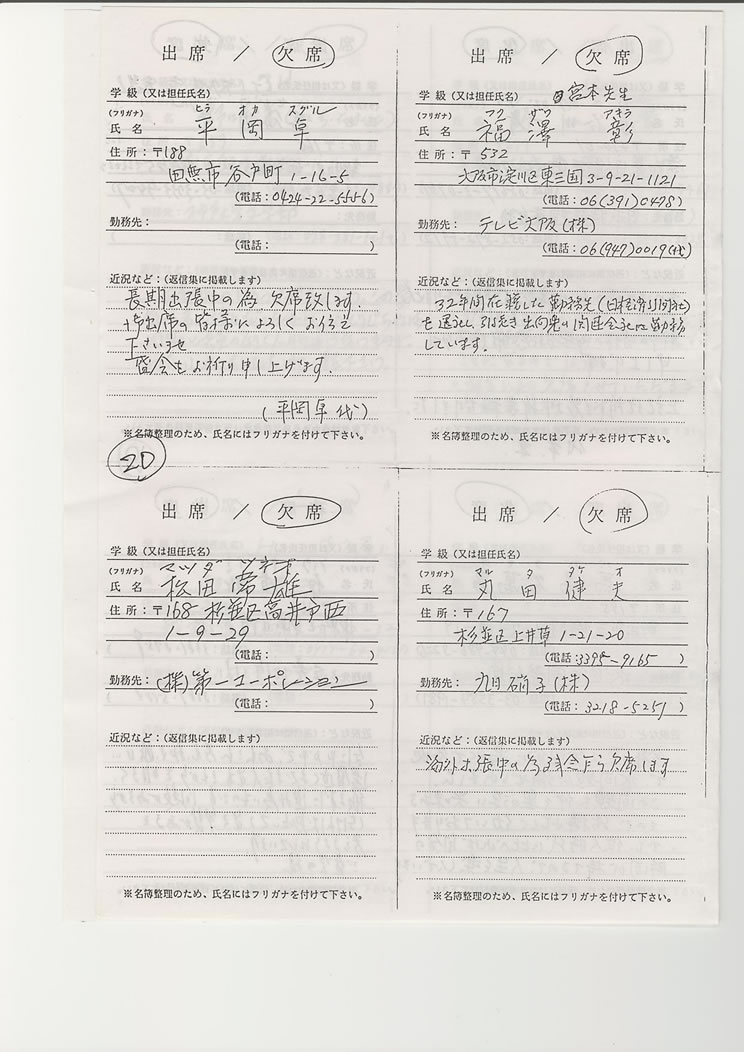 出席 / 欠席
学級（又は担任氏名）
(フリガナ) ヒラ オカ スグル
氏名 平岡卓
住所：〒188
田無市谷戸町 1-16-5
(電話：0424-22-5556)
勤務先：
(電話： )
近況など：（返信集に掲載します）
長期出張中の為、欠席致します.
御出席の皆様によろしくお伝え
下さいませ
盛会をお祈り申し上げます.
(平岡卓 代)
※名簿整理のため、氏名にはフリガナを付けて下さい。
出席 / 欠席
学級（又は担任氏名） 宮本先生
(フリガナ) フク ザワ アキラ
氏名 福澤彰
住所：〒532
大阪市淀川区東三国 3-9-21-1121
(電話：06(391)0478)
勤務先： テレビ大阪(株)
(電話：06(947)0019(代)
近況など：（返信集に掲載します）
32年間在籍した勤務先(日経済新聞社)
を退社し、引続き出向先の関連会社に勤務
しています.
※名簿整理のため、氏名にはフリガナを付けて下さい。
20
出席 / 欠席
学級（又は担任氏名）
(フリガナ) マツダ ツネオ
氏名 松田常雄
住所：〒168 杉並区高井戸西
1-9-29
(電話： )
勤務先： (株)第一コーポレーション
(電話： )
近況など：（返信集に掲載します）
※名簿整理のため、氏名にはフリガナを付けて下さい。
出席 / 欠席
学級（又は担任氏名）
(フリガナ) マル タ タケ オ
氏名 丸田健夫
住所：〒167
杉並区上井草 1-21-20
(電話：3395-9165)
勤務先： 旭硝子(株)
(電話：3218-5251)
近況など：（返信集に掲載します）
海外出張中の為残念乍ら欠席します
※名簿整理のため、氏名にはフリガナを付けて下さい。